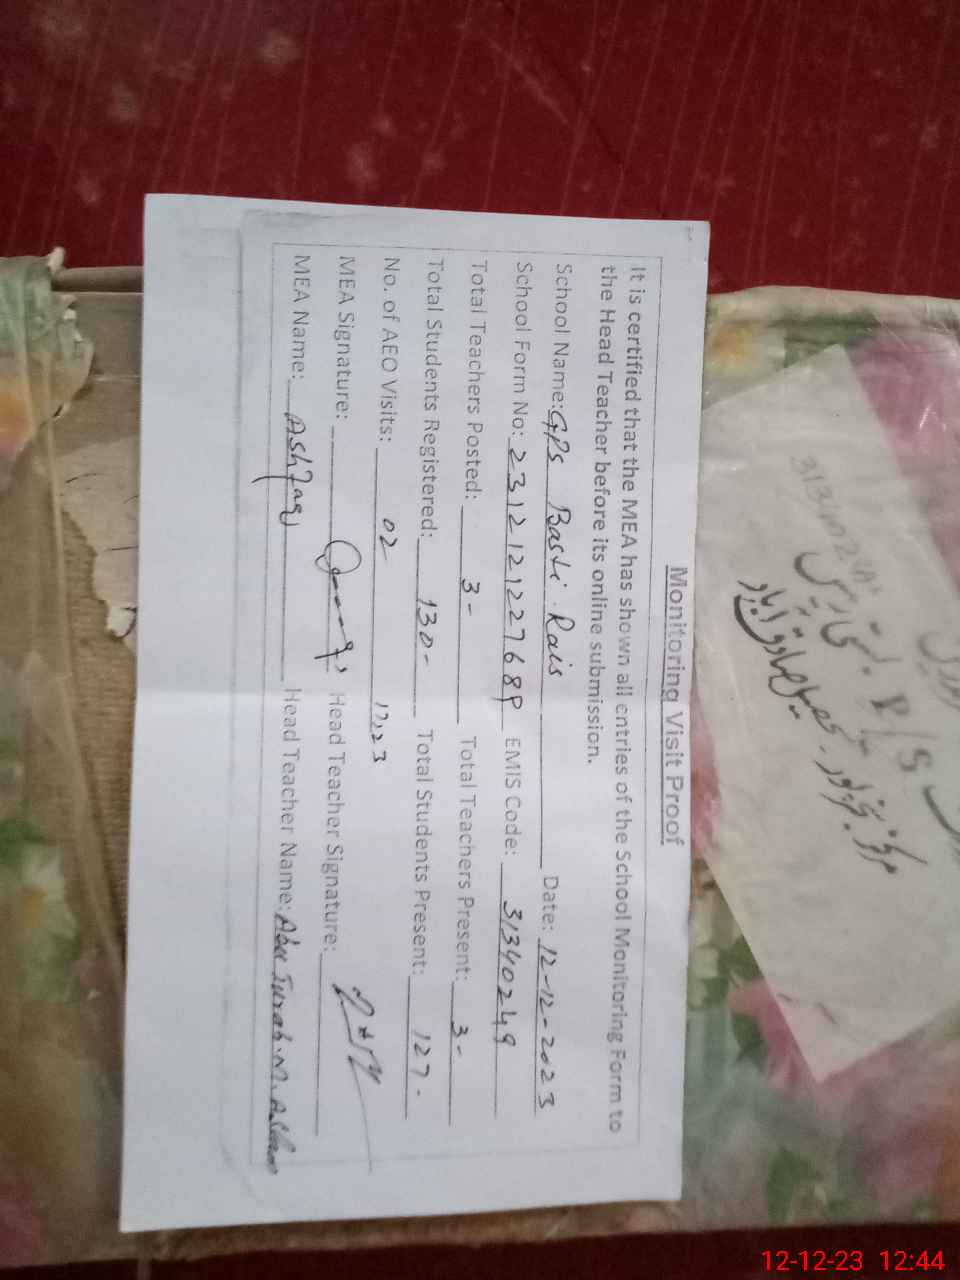 Monitoring Visit Proof
It is certified that the MEA has shown all entries of the School Monitoring Form to
the Head Teacher before its online submission.
School Name: GPS Basti Rais Date: 12-12-2023
School Form No: 231212122768P EMIS Code: 31340249
Total Teachers Posted: 3- Total Teachers Present: 3-
Total Students Registered: 130- Total Students Present: 127-
No. of AEO Visits: 02
MEA Signature: Head Teacher Signature:
MEA Name: Ashfaq Head Teacher Name: Abu Turab M. Aslam
P/S بستی رئیس
تحصیل صادق آباد
12-12-23 12:44